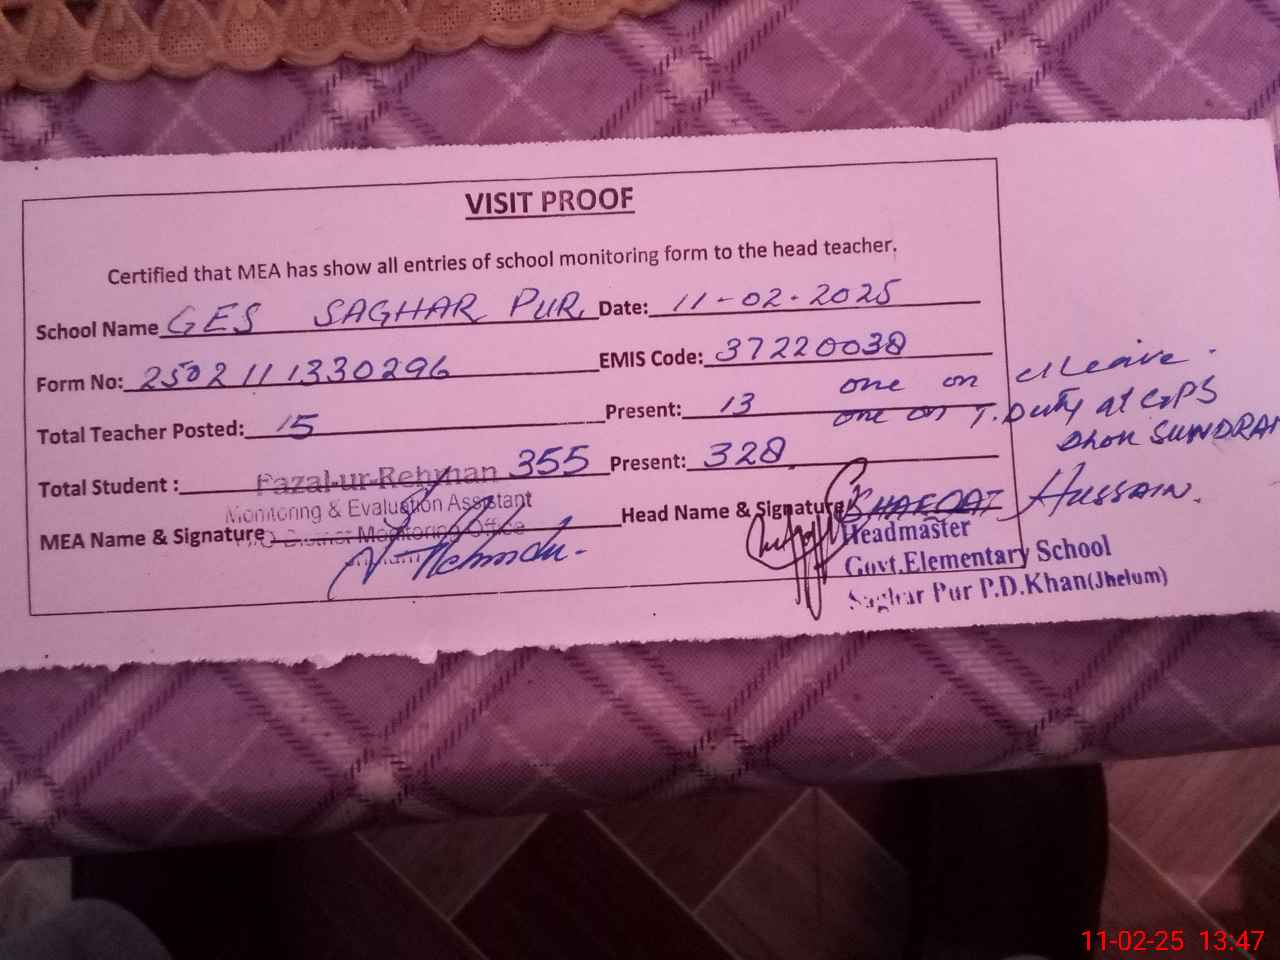 VISIT PROOF
Certified that MEA has show all entries of school monitoring form to the head teacher.
School Name GES SAGHAR PUR Date: 11-02-2025
Form No: 2502111330296 EMIS Code: 37220038
Total Teacher Posted: 15 Present: 13 one on cl leave.
one on T. Duty at GPS
Dhok SUNDRAH
Total Student : 355 Present: 328
Fazal-ur-Rehman
Monitoring & Evaluation Assistant
District Monitoring Office
MEA Name & Signature Head Name & Signature SHAFQAT HUSSAIN.
Headmaster
Govt.Elementary School
Saghar Pur P.D.Khan(Jhelum)
11-02-25 13:47